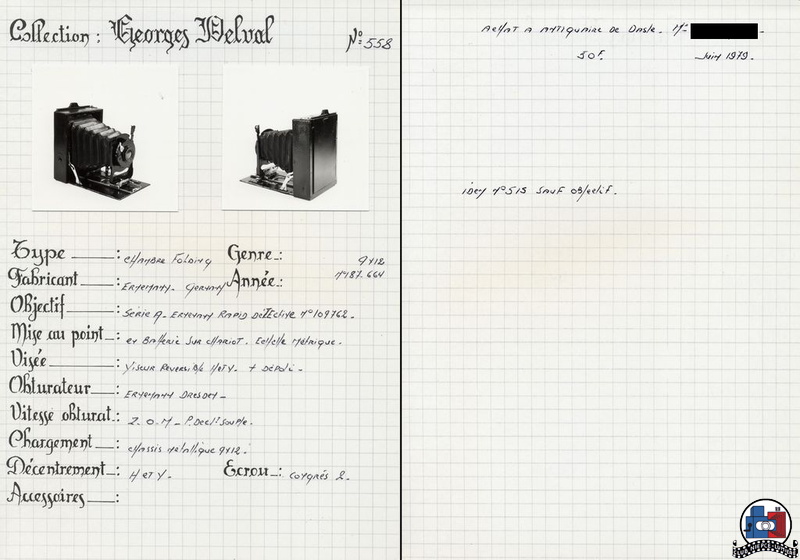 Collection : Georges Delval
N° 558
Type : CHAMBRE FOLDING Genre : 9x12
Fabricant : ERNEMANN. GERMANY Année : N°187.664
Objectif : Série A. ERNEMANN RAPID DETECTIVE N°109762.
Mise au point : EN BATTERIE SUR CHARIOT. Echelle Métrique.
Visée : VISEUR REVERSIBLE H et V. + DÉPOLI.
Obturateur : ERNEMANN DRESDEN
Vitesse obturat. : Z.O.M - P. Decl! souple.
Chargement : châssis métallique 9x12.
Décentrement : H et V. Ecrou : CONGRÈS 2.
Accessoires :
ACHAT A ANTIQUAIRE DE . N°
50F. Juin 1979.
IDEM N°515 SAUF Objectif.